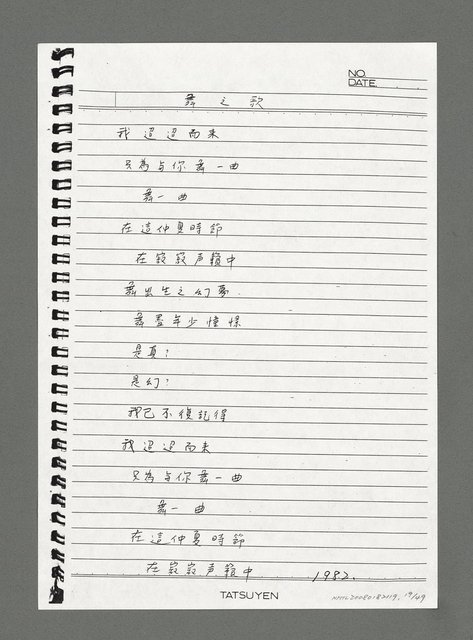 NO.
DATE
舞之歌
我迢迢而来
只為与你舞一曲
舞一曲
在這仲夏時節
在寂寂声籟中
舞出生之幻夢.
舞盡年少憧憬
是真?
是幻?
我已不復記得
我迢迢而来
只為与你舞一曲
舞一曲
在這仲夏時節
在寂寂声籟中 1982.
TATSUYEN
NMTL20080182119, 19/49